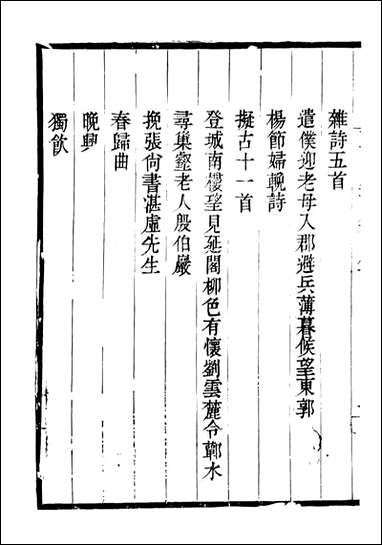 雜詩五首
遣僕迎老母入郡避兵薄暮候望東郭
楊節婦輓詩
擬古十一首
登城南樓望見延閣柳色有懷劉雲麓令鄿水
尋巢壑老人殷伯巖
挽張尚書湛虛先生
春歸曲
晚興
獨飲